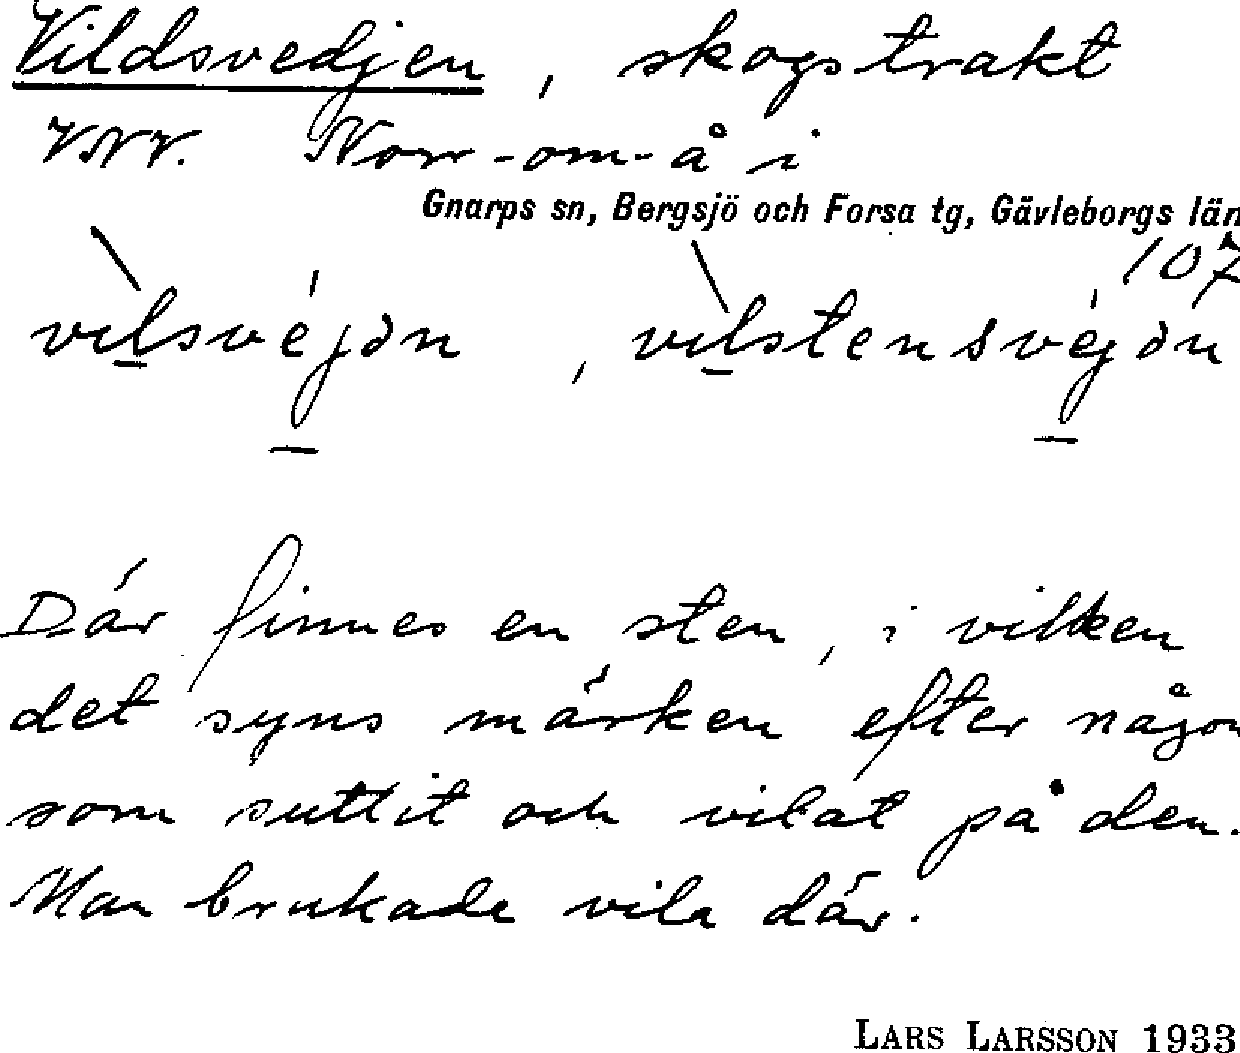 Vildsvedjen, skogstrakt
VNV. Norr-om-å i
Gnarps sn, Bergsjö och Forsa tg, Gävleborgs län
107
vilsvéjən, vilstensvéjən
Där finnes en sten, i vilken
det syns märken efter någon
som suttit och vilat på den.
Man brukade vila där.
LARS LARSSON 1933